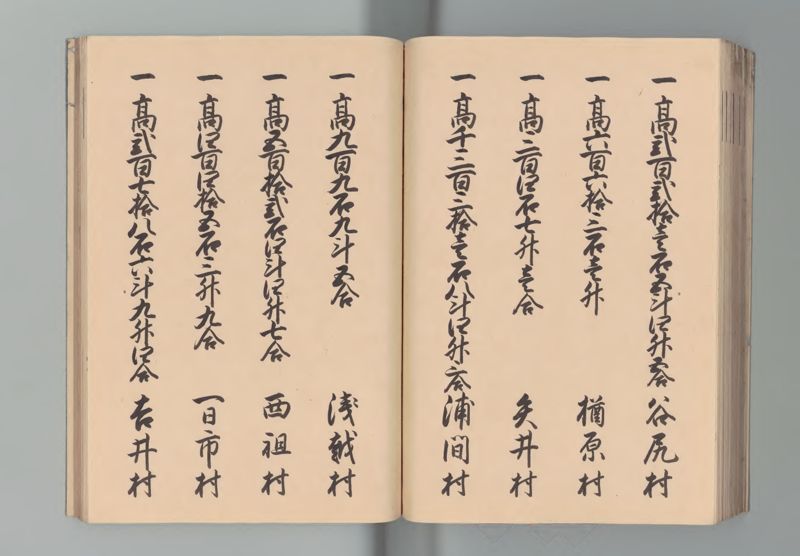 一 高弐百弐拾壱石五斗四升合 谷尻村
一 高六百六拾三石壱升 楢原村
一 高三百四石七升壱合 矢井村
一 高千三百三拾壱石八斗四升合 浦間村
一 高九百九石九斗五合 浅越村
一 高五百拾弐石四斗四升七合 西祖村
一 高四百四拾五石三升九合 一日市村
一 高弐百七拾八石六斗九升四合 吉井村